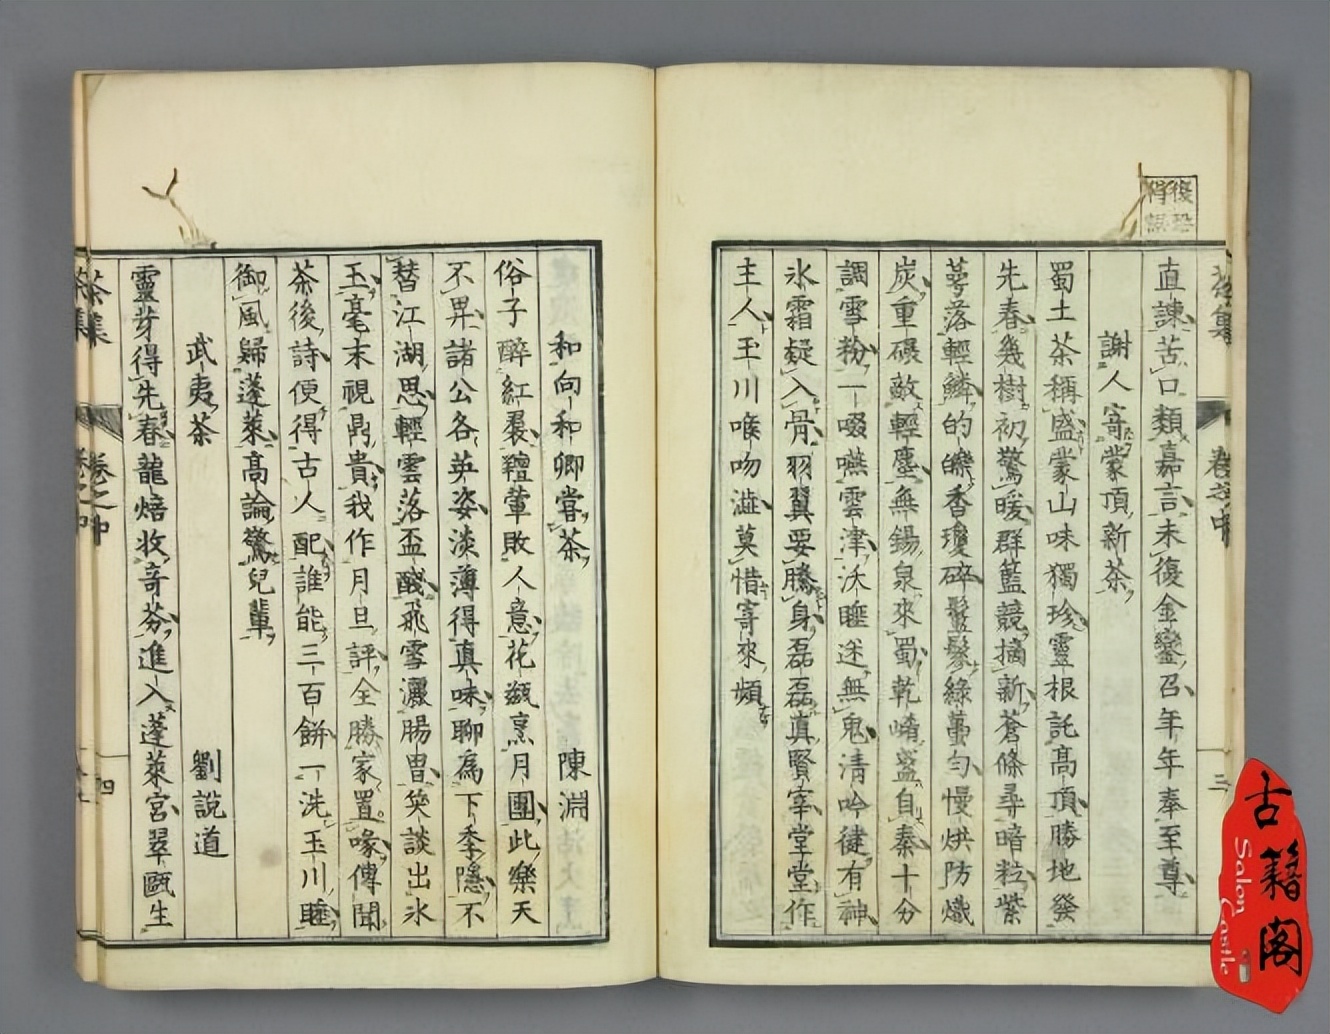 直諫苦口類嘉言未復金鑾召年年奉至尊
謝人寄蒙頂新茶
蜀土茶稱盛蒙山味獨珍靈根託高頂勝地發
先春幾樹初驚暖群籃競摘新蒼條尋暗粒紫
萼落輕鱗的皪香瓊碎鬖髿綠蠆勻慢烘防熾
炭重碾敵輕塵無錫泉來蜀乾崤盞自秦十分
調雪粉一啜嚥雲津沃睡迷無鬼清吟健有神
氷霜疑入骨羽翼要騰身磊磊真賢宰堂堂作
主人玉川喉吻澁莫惜寄來頻
三
和向和卿嘗茶 陳淵
俗子醉紅裠羶葷敗人意花甆烹月團此樂天
不畀諸公各英姿淡薄得真味聊為下季隱不
替江湖思輕雲落盃醆飛雪灑腸胃笑談出氷
玉毫末視鼎貴我作月旦評全勝家置喙傳聞
茶後詩便得古人配誰能三百餅一洗玉川睡
御風歸蓬萊高論驚兒輩
武夷茶 劉說道
靈芽得先春龍焙收奇芬進入蓬萊宮翠甌生
茶集 卷之中 四
古籍阁
Salon Castle